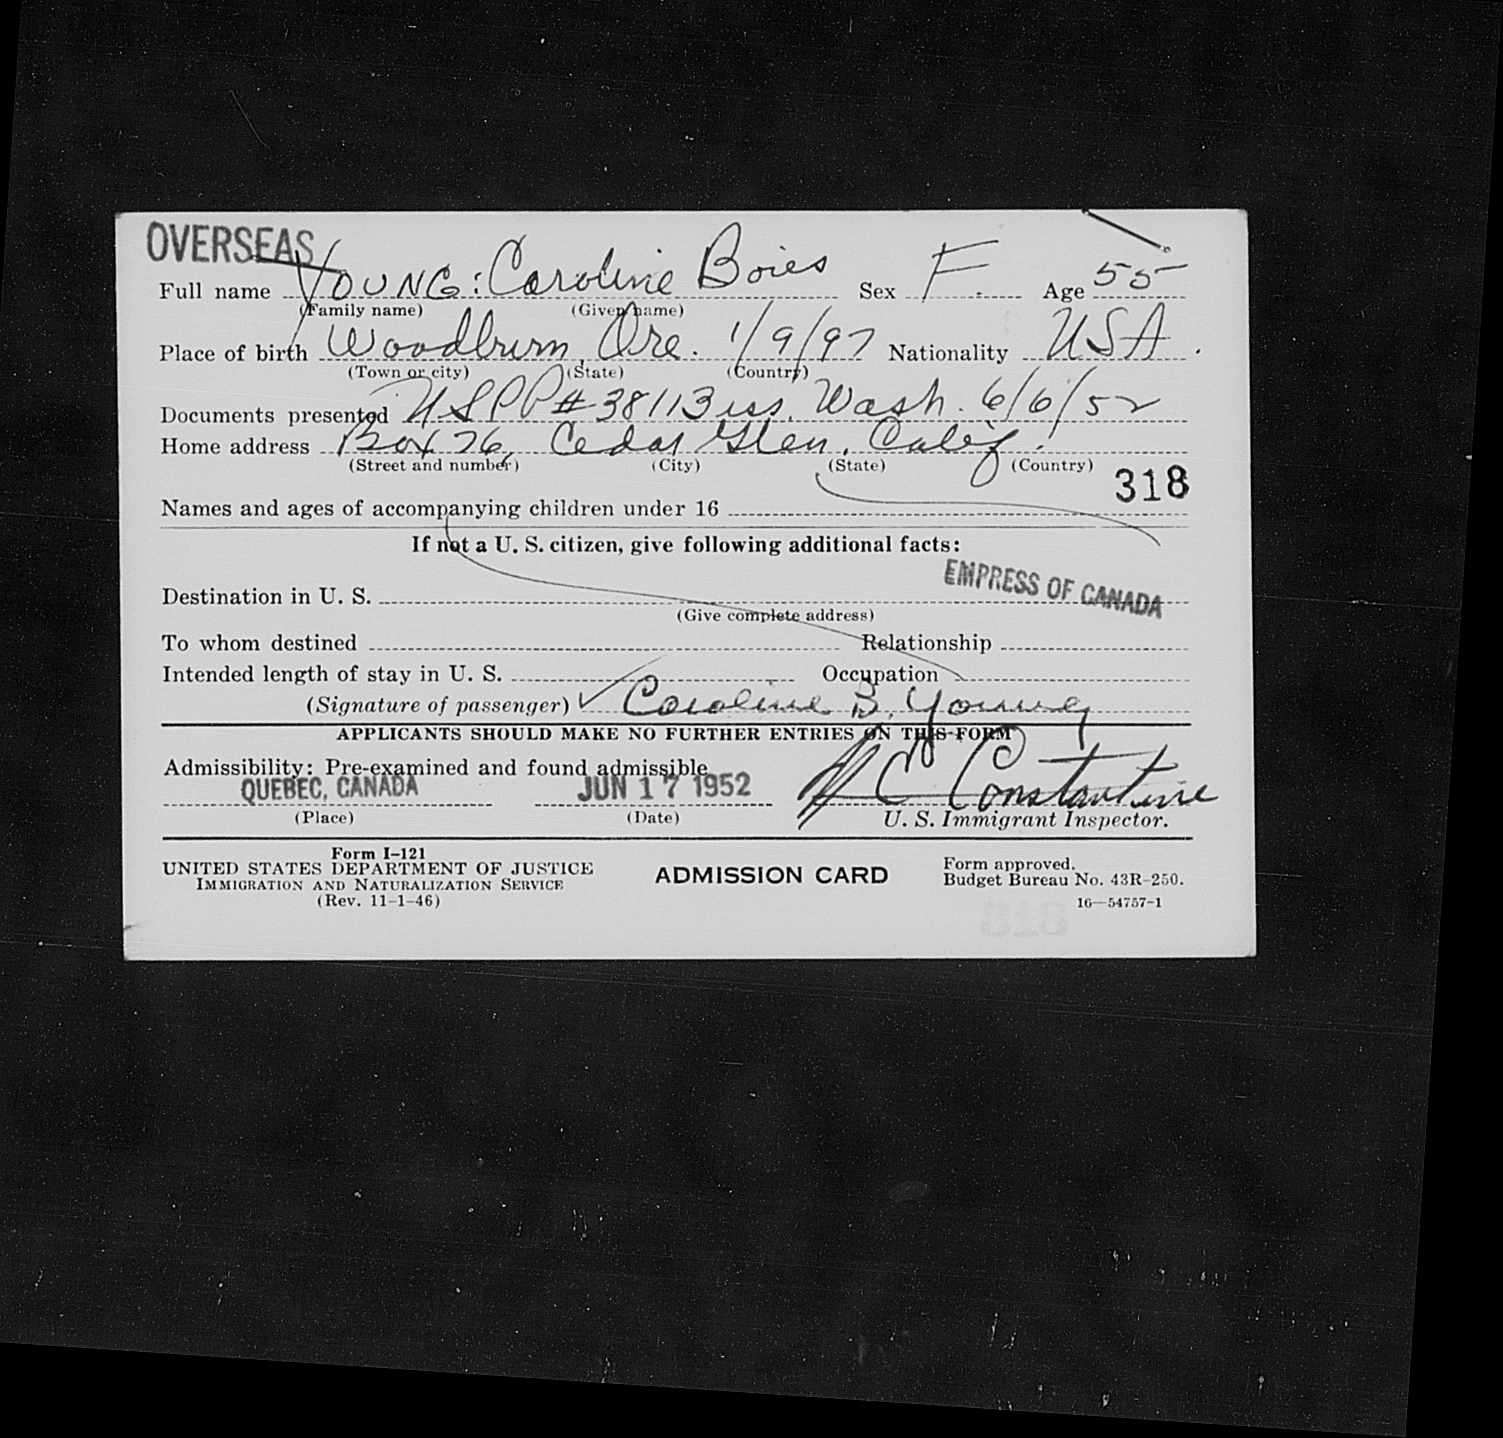 OVERSEAS
Full name YOUNG: Caroline Boies Sex F. Age 55
(Family name) (Given name)
Place of birth Woodburn, Ore. 1/9/97 Nationality USA.
(Town or city) (State) (Country)
Documents presented USPP# 38113 iss. Wash. 6/6/52
Home address Box 76, Cedar Glen, Calif.
(Street and number) (City) (State) (Country)
318
Names and ages of accompanying children under 16
If not a U. S. citizen, give following additional facts:
EMPRESS OF CANADA
Destination in U. S.
(Give complete address)
To whom destined Relationship
Intended length of stay in U. S. Occupation
(Signature of passenger) Caroline B. Young
APPLICANTS SHOULD MAKE NO FURTHER ENTRIES ON THIS FORM
Admissibility: Pre-examined and found admissible
QUEBEC, CANADA JUN 17 1952 C Constantine
(Place) (Date) U. S. Immigrant Inspector.
Form I-121
UNITED STATES DEPARTMENT OF JUSTICE
IMMIGRATION AND NATURALIZATION SERVICE
(Rev. 11-1-46)
ADMISSION CARD
Form approved.
Budget Bureau No. 43R-250.
16—54757-1
318